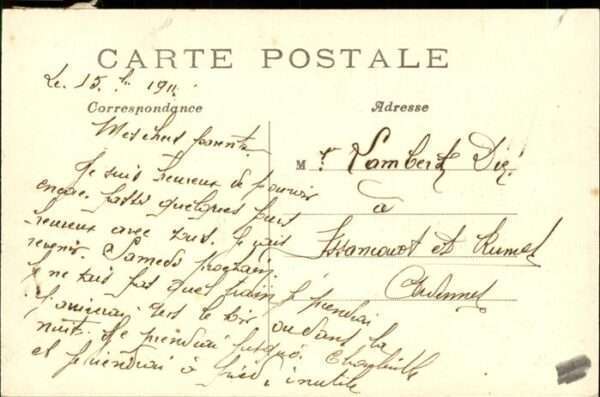 CARTE POSTALE
Le 15 1911
Correspondance
Adresse
Mes chers parents
Je suis heureux de pouvoir
encore passer quelques jours
heureux avec vous. Je vais
revenir Samedi prochain.
Je ne sais pas quel train je prendrai
J'arriverai vers le soir ou dans la
nuit. Je prendrai jusqu'à Charleville
et je viendrai à pied, inutile
M r Lambert
à
Issancourt et Rumel
Ardennes